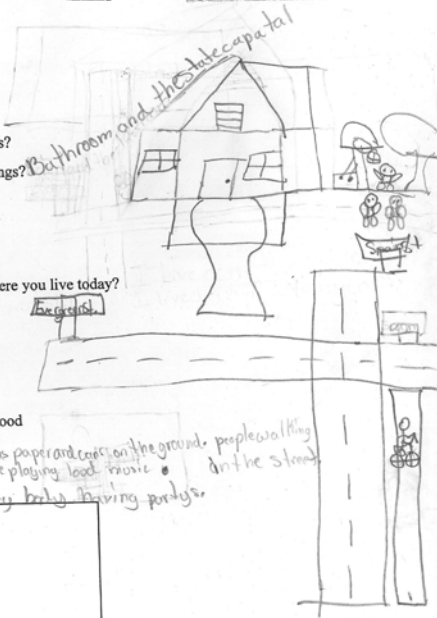 Bathroom and the state capatal
s?
ngs?
ere you live today?
Evergreen St.
ood
paper and cans on the ground. people walking
e playing loud music. on the street.
y body having partys.